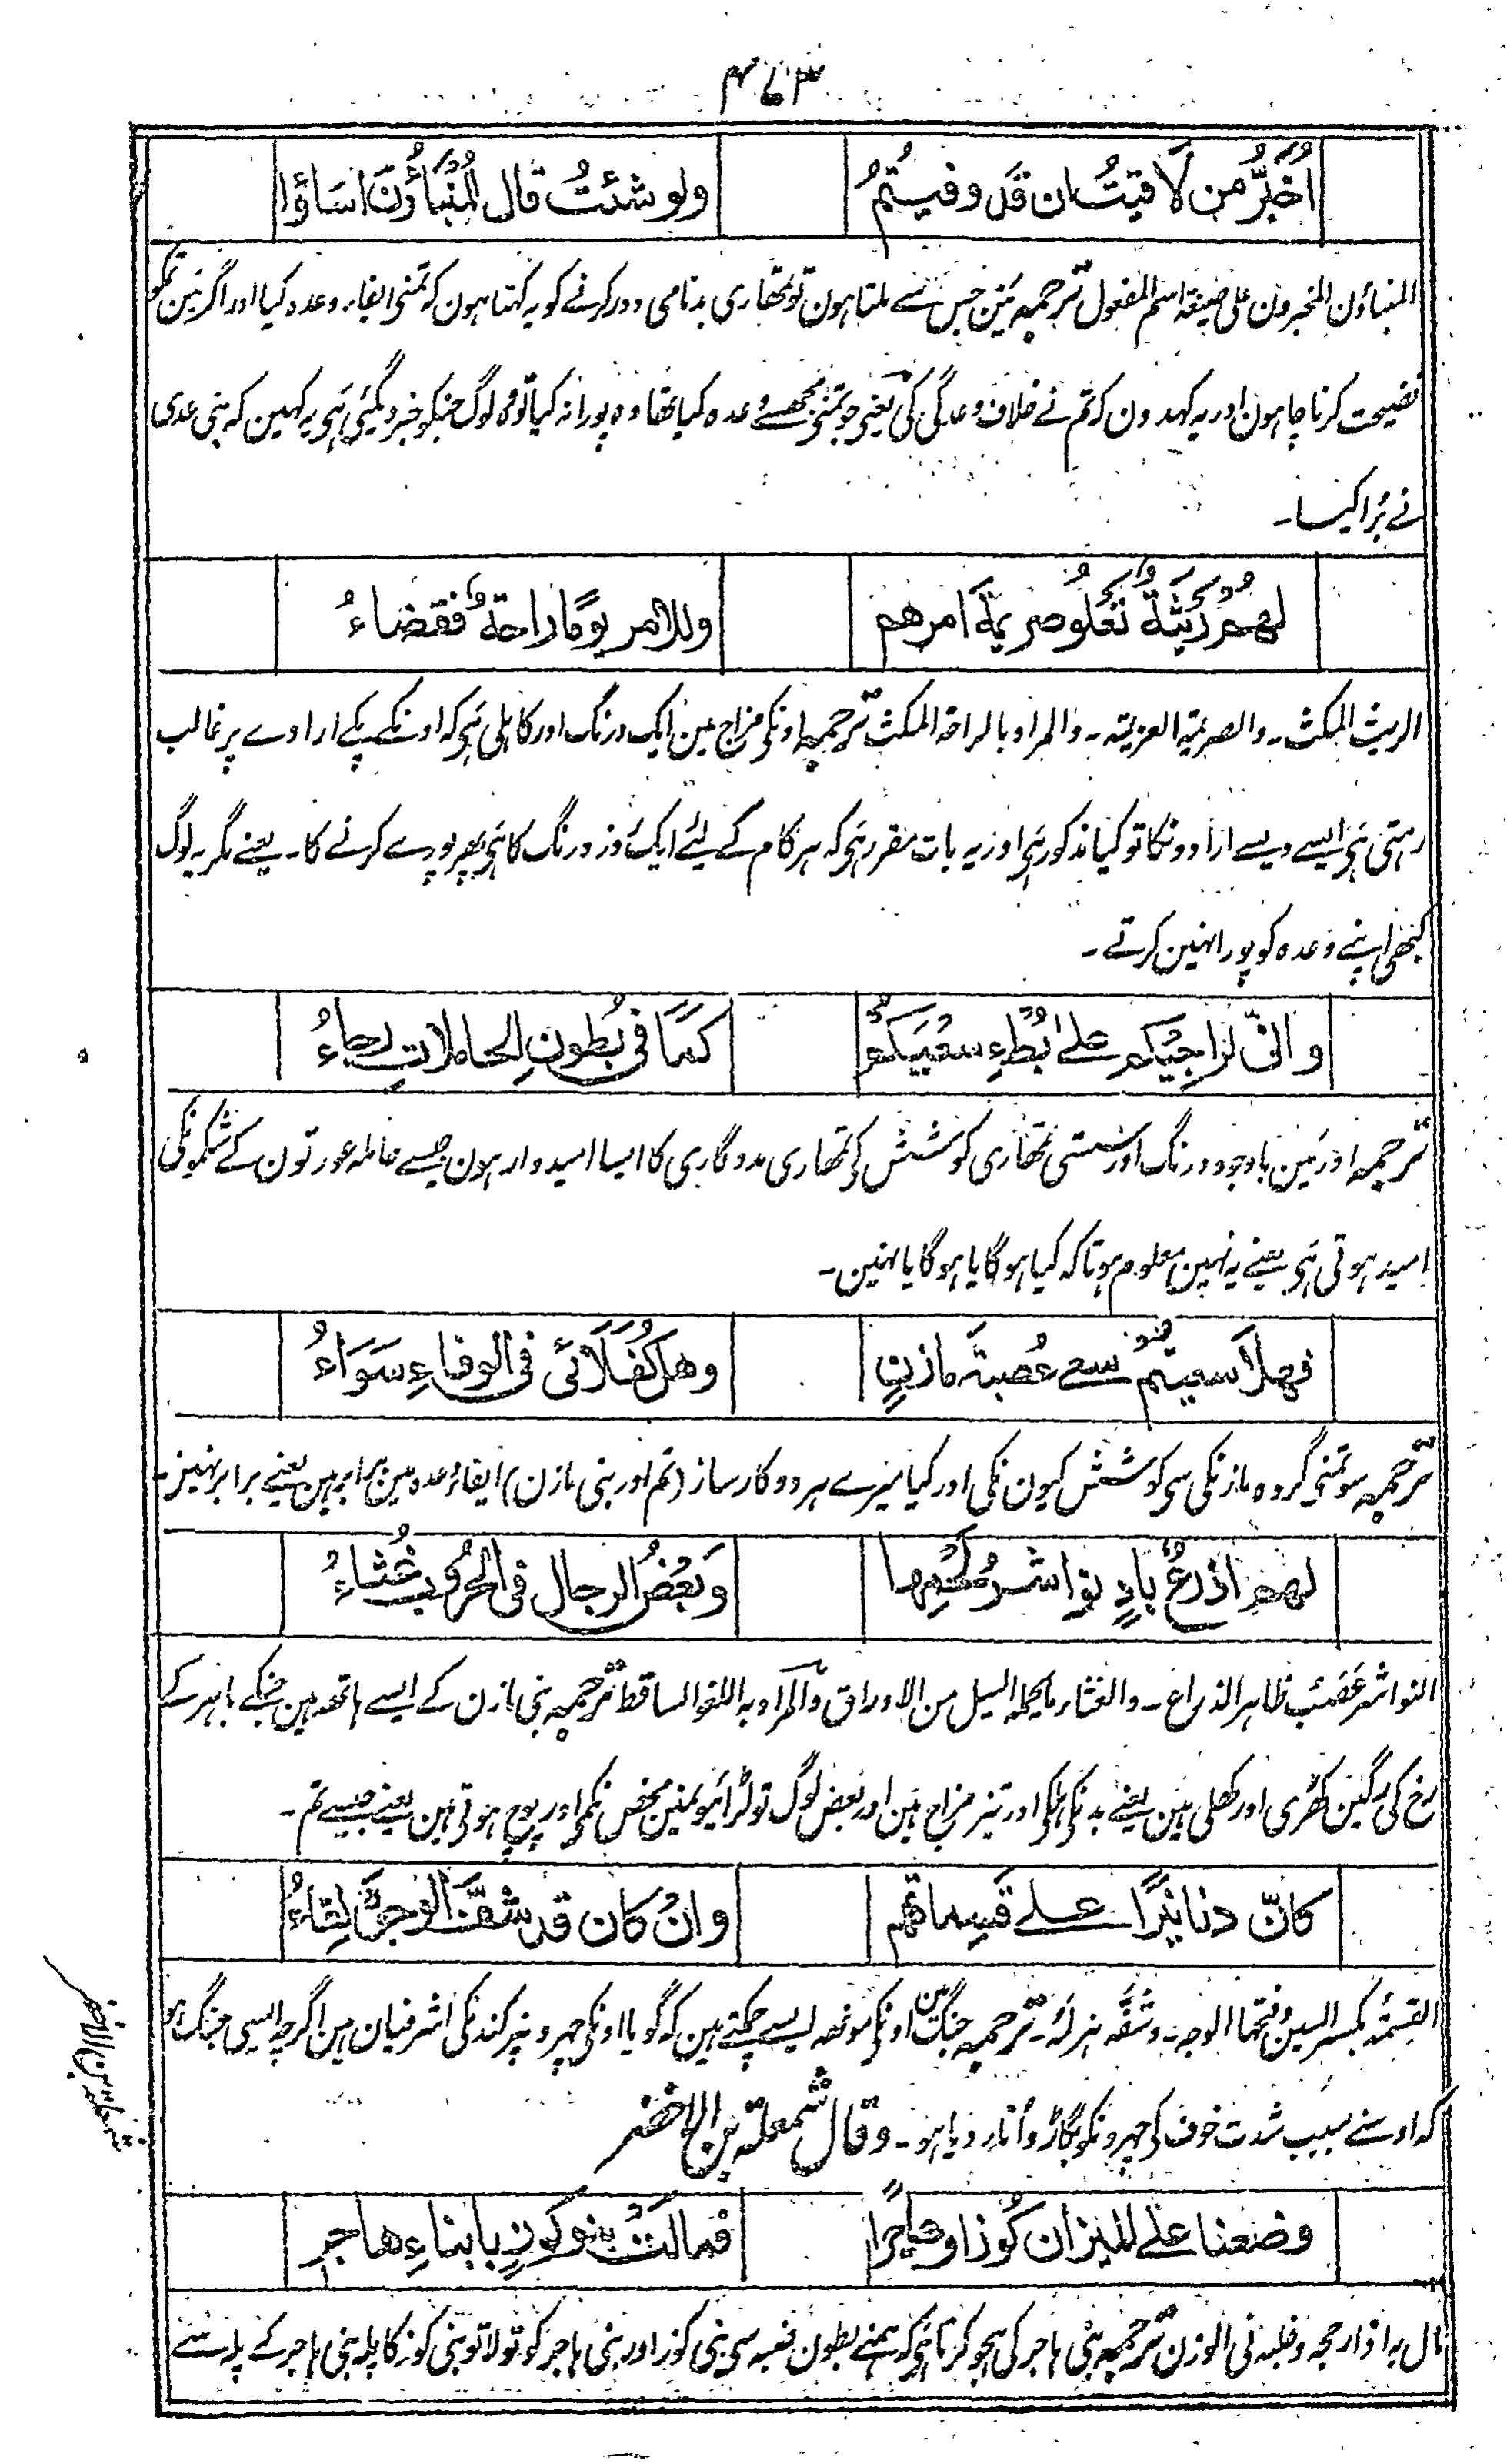 ۴۷۳
اُخَبِّرُ من لَّاقيتُ ان قَد وفيتُمُ ولو شئتُ قال المُنبَاؤُنَ اسَاؤا
المنباؤن المخبرون علی صیغۃ اسم المفعول ترجمہ مَین جس سے ملتا ہون تو تمھاری بدنامی دور کرنے کو یہ کہتا ہون کہ تمنے ایفاء وعدہ کیا اور اگر مَین تمکو
فضیحت کرنا چاہون اور یہ کہدون کہ تم نے خلاف وعدگی کی یعنی جو تمنے مجھسے وعدہ کیا تھا وہ پورا نہ کیا تو وہ لوگ جنکو خبر دیگئی ہَی یہ کہین کہ بنی عدی
نے بُرا کیا۔
لهم رَيثَةٌ تَعلُو صريمَةَ امرهم وللامر يومًا راحةٌ فقضاءُ
الریث المکث۔ والصریمۃ العزیمۃ۔ والمراد بالراحۃ المکث ترجمہ اونکی مزاج مین ایک درنگ اور کاہلی ہَی کہ اونکے پکے ارادے پر غالب
رہتی ہَی ایسے ویسے ارادونکا تو کیا مذکور ہَی اور یہ بات مقرر ہَی کہ ہر کام کے لئے ایک روز درنگ کا ہَی پھر پورے کرنے کا۔ یعنے مگر یہ لوگ
کبھی اپنے وعدہ کو پورا نہین کرتے۔
وانّی لراجيكم علی بُطْءِ سعيِكم كما فی بُطونِ الحاملاتِ رجاءُ
ترجمہ اور مَین باوجود درنگ اور سستی تمھاری کوشش کی تمھاری مددگاری کا ایسا امیدوار ہون جیسے حاملہ عورتون کے شکمونکی
امید ہوتی ہَی یعنے یہ نہین معلوم ہوتا کہ کیا ہوگا یا ہوگا یا نہین۔
فهلّا سعيتُم سعی عُصبةِ مازنٍ وهل كُفَلَائی فی الوفاءِ سَوَاءُ
ترجمہ سو تمنے گروہ مازنکی سی کوشش کیون نکی اور کیا میرے ہر دو کارساز (تم اور بنی مازن) ایفاء وعدہ مین برابر ہین یعنے برابر نہین۔
لهم اذرعٌ بادٍ نواشرُ لحمِها وَبَعضُ الرجال فی الحُروبِ غُثاءُ
النواشر عَصَب ظاہر الذراع۔ والغثاء ما یحملہ السیل من الاوراق والمراد بہ اللغو الساقط ترجمہ بنی مازن کے ایسے ہاتھ ہین جنکے باہر کے
رخ کی رگین کھڑی اور کھلی ہین یعنے بدنکی ہلکی اور تیز مزاج ہین اور بعض لوگ تو لڑائیونمین محض نکمی اور پوچ ہوتی ہین یعنے جیسے تم۔
كانّ دنانيرًا علی قسماتهم وان كان قد شفَّ الوجوهَ لقاءُ
القسمۃ بکسر السین وفتحہا الوجہ۔ وشَفَّہ ہزلہٗ۔ ترجمہ جنگ مین اونکی مونھہ ایسے چمکتے ہین کہ گویا اونکی چہرونپر کندنکی اشرفیان ہین اگرچہ ایسی جنگ ہو
کہ اوسنے بسبب شدت خوف کی چہرونکو بگاڑ واتار دیا ہو۔ وقال شمعلۃ بن الاخضر
شمعلۃ بن الاخضر
وضعنا علی الميزان كُوزا وهاجرًا فمالت بنو كوزٍ بابناءِ هاجر
مال بہ اذا رجحہ وغلبہ فی الوزن ترجمہ بنی ہاجر کی ہجو کرتا ہَی کہ ہمنے بطون ضبہ سی بنی کوز اور بنی ہاجر کو تولا تو بنی کوز کا پلہ بنی ہاجر کے پلہ سے